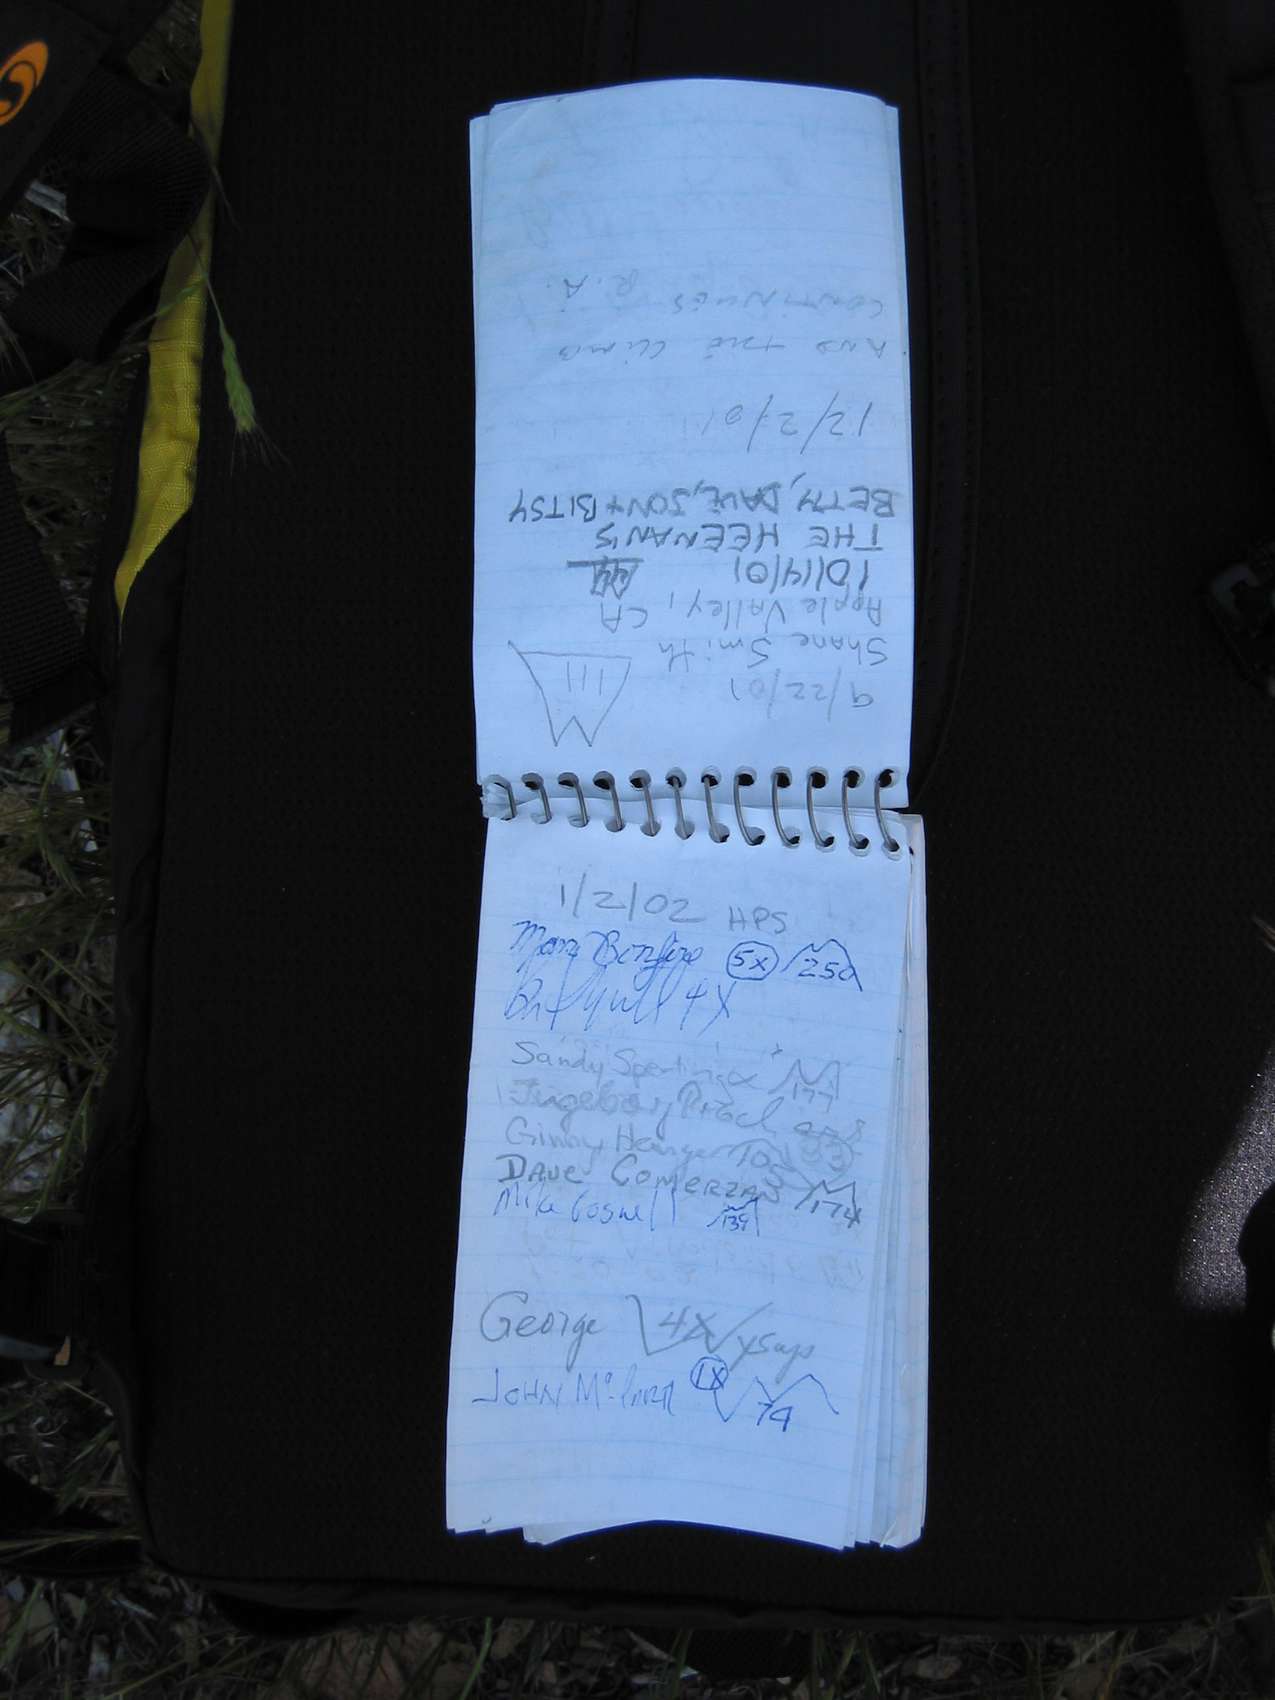 9/22/01
Shane Smith
Apple Valley, CA
10/14/01
THE HEENAN'S
BETH, DAVE, JON + BITSY
12/2/01
AND THE CLIMB
CONTINUES R.A.
1/2/02 HPS
5X 250
4X
Sandy Sperling 177
Ingeborg
Ginny Heringer
DAVE COMERZAN 174
Mike Goswell 139
George 4X
JOHN 1X 74